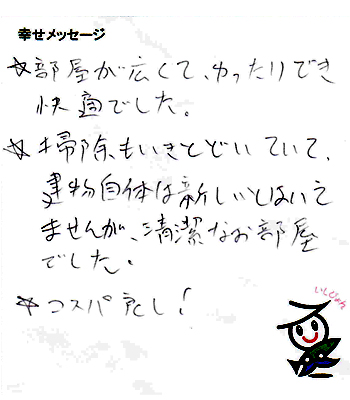 幸せメッセージ
☆部屋が広くて、ゆったりでき
快適でした。
☆掃除もいきとどいていて、
建物自体は新しいとはいえ
ませんが、清潔なお部屋
でした。
☆コスパ良し!